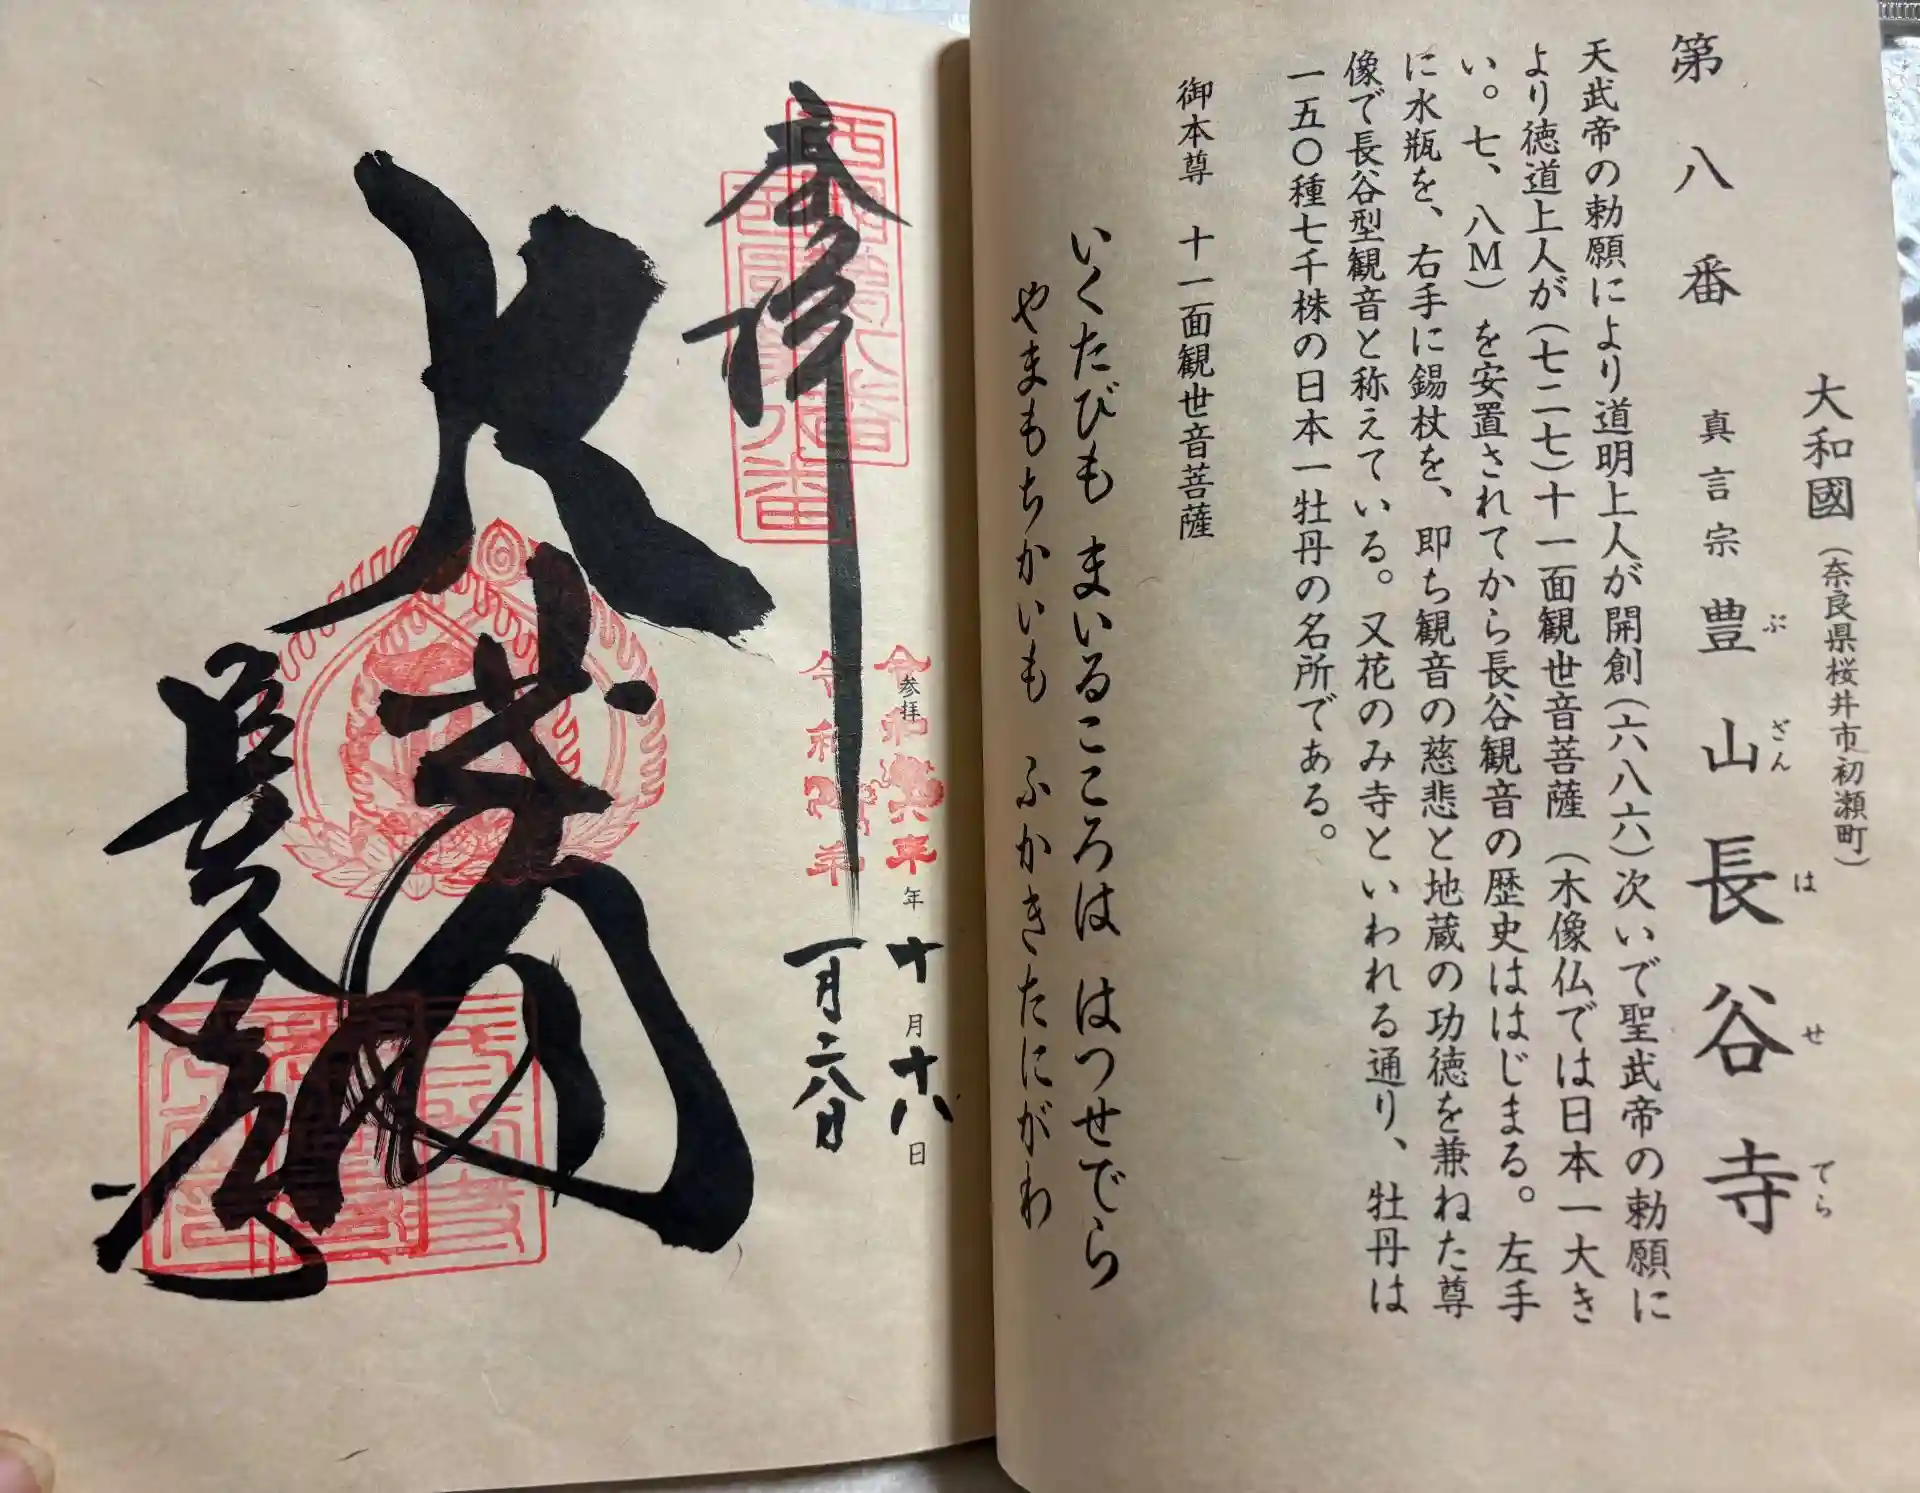 大和國（奈良県桜井市初瀬町）
第八番 真言宗 豊山 長谷寺
ぶざん はせでら
天武帝の勅願により道明上人が開創（六八六）次いで聖武帝の勅願に
より徳道上人が（七二七）十一面観世音菩薩（木像仏では日本一大き
い。七、八M）を安置されてから長谷観音の歴史ははじまる。左手
に水瓶を、右手に錫杖を、即ち観音の慈悲と地蔵の功徳を兼ねた尊
像で長谷型観音と称えている。又花のみ寺といわれる通り、牡丹は
一五〇種七千株の日本一牡丹の名所である。
御本尊 十一面観世音菩薩
いくたびも まいるこころは はつせでら
やまもちかいも ふかきたにがわ
奉拝
参拝
令和六年年十月十八日
一月二八日
大悲閣
長谷寺